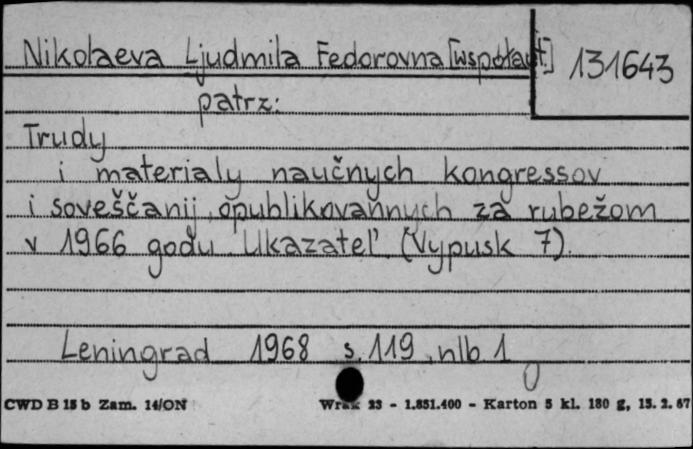 Nikolaeva Ljudmila Fedorovna [współaut.]
131643
patrz:
Trudy
i materialy naučnych kongressov
i soveščanij, opublikovannych za rubežom
v 1966 godu. Ukazatel'. (Vypusk 7).
Leningrad 1968 s. 119, nlb 1
CWD B 15 b Zam. 14/ON
Wrak 23 - 1.851.400 - Karton 5 kl. 180 g, 15. 2. 67